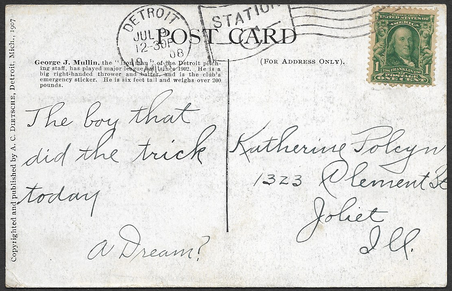 DETROIT
JUL
12-30P
08
STATION
POST CARD
(FOR ADDRESS ONLY).
George J. Mullin, the of the Detroit pitch-
ing staff, has played major league ball since 1902. He is a
big right-handed thrower and batter, and is the club's
emergency sticker. He is six feet tall and weighs over 200
pounds.
Copyrighted and published by A. C. DIETSCHE, Detroit, Mich., 1907
The boy that
did the trick
today
A Dream?
Katherine Polcyn
1323 Clement St
Joliet
Ill.